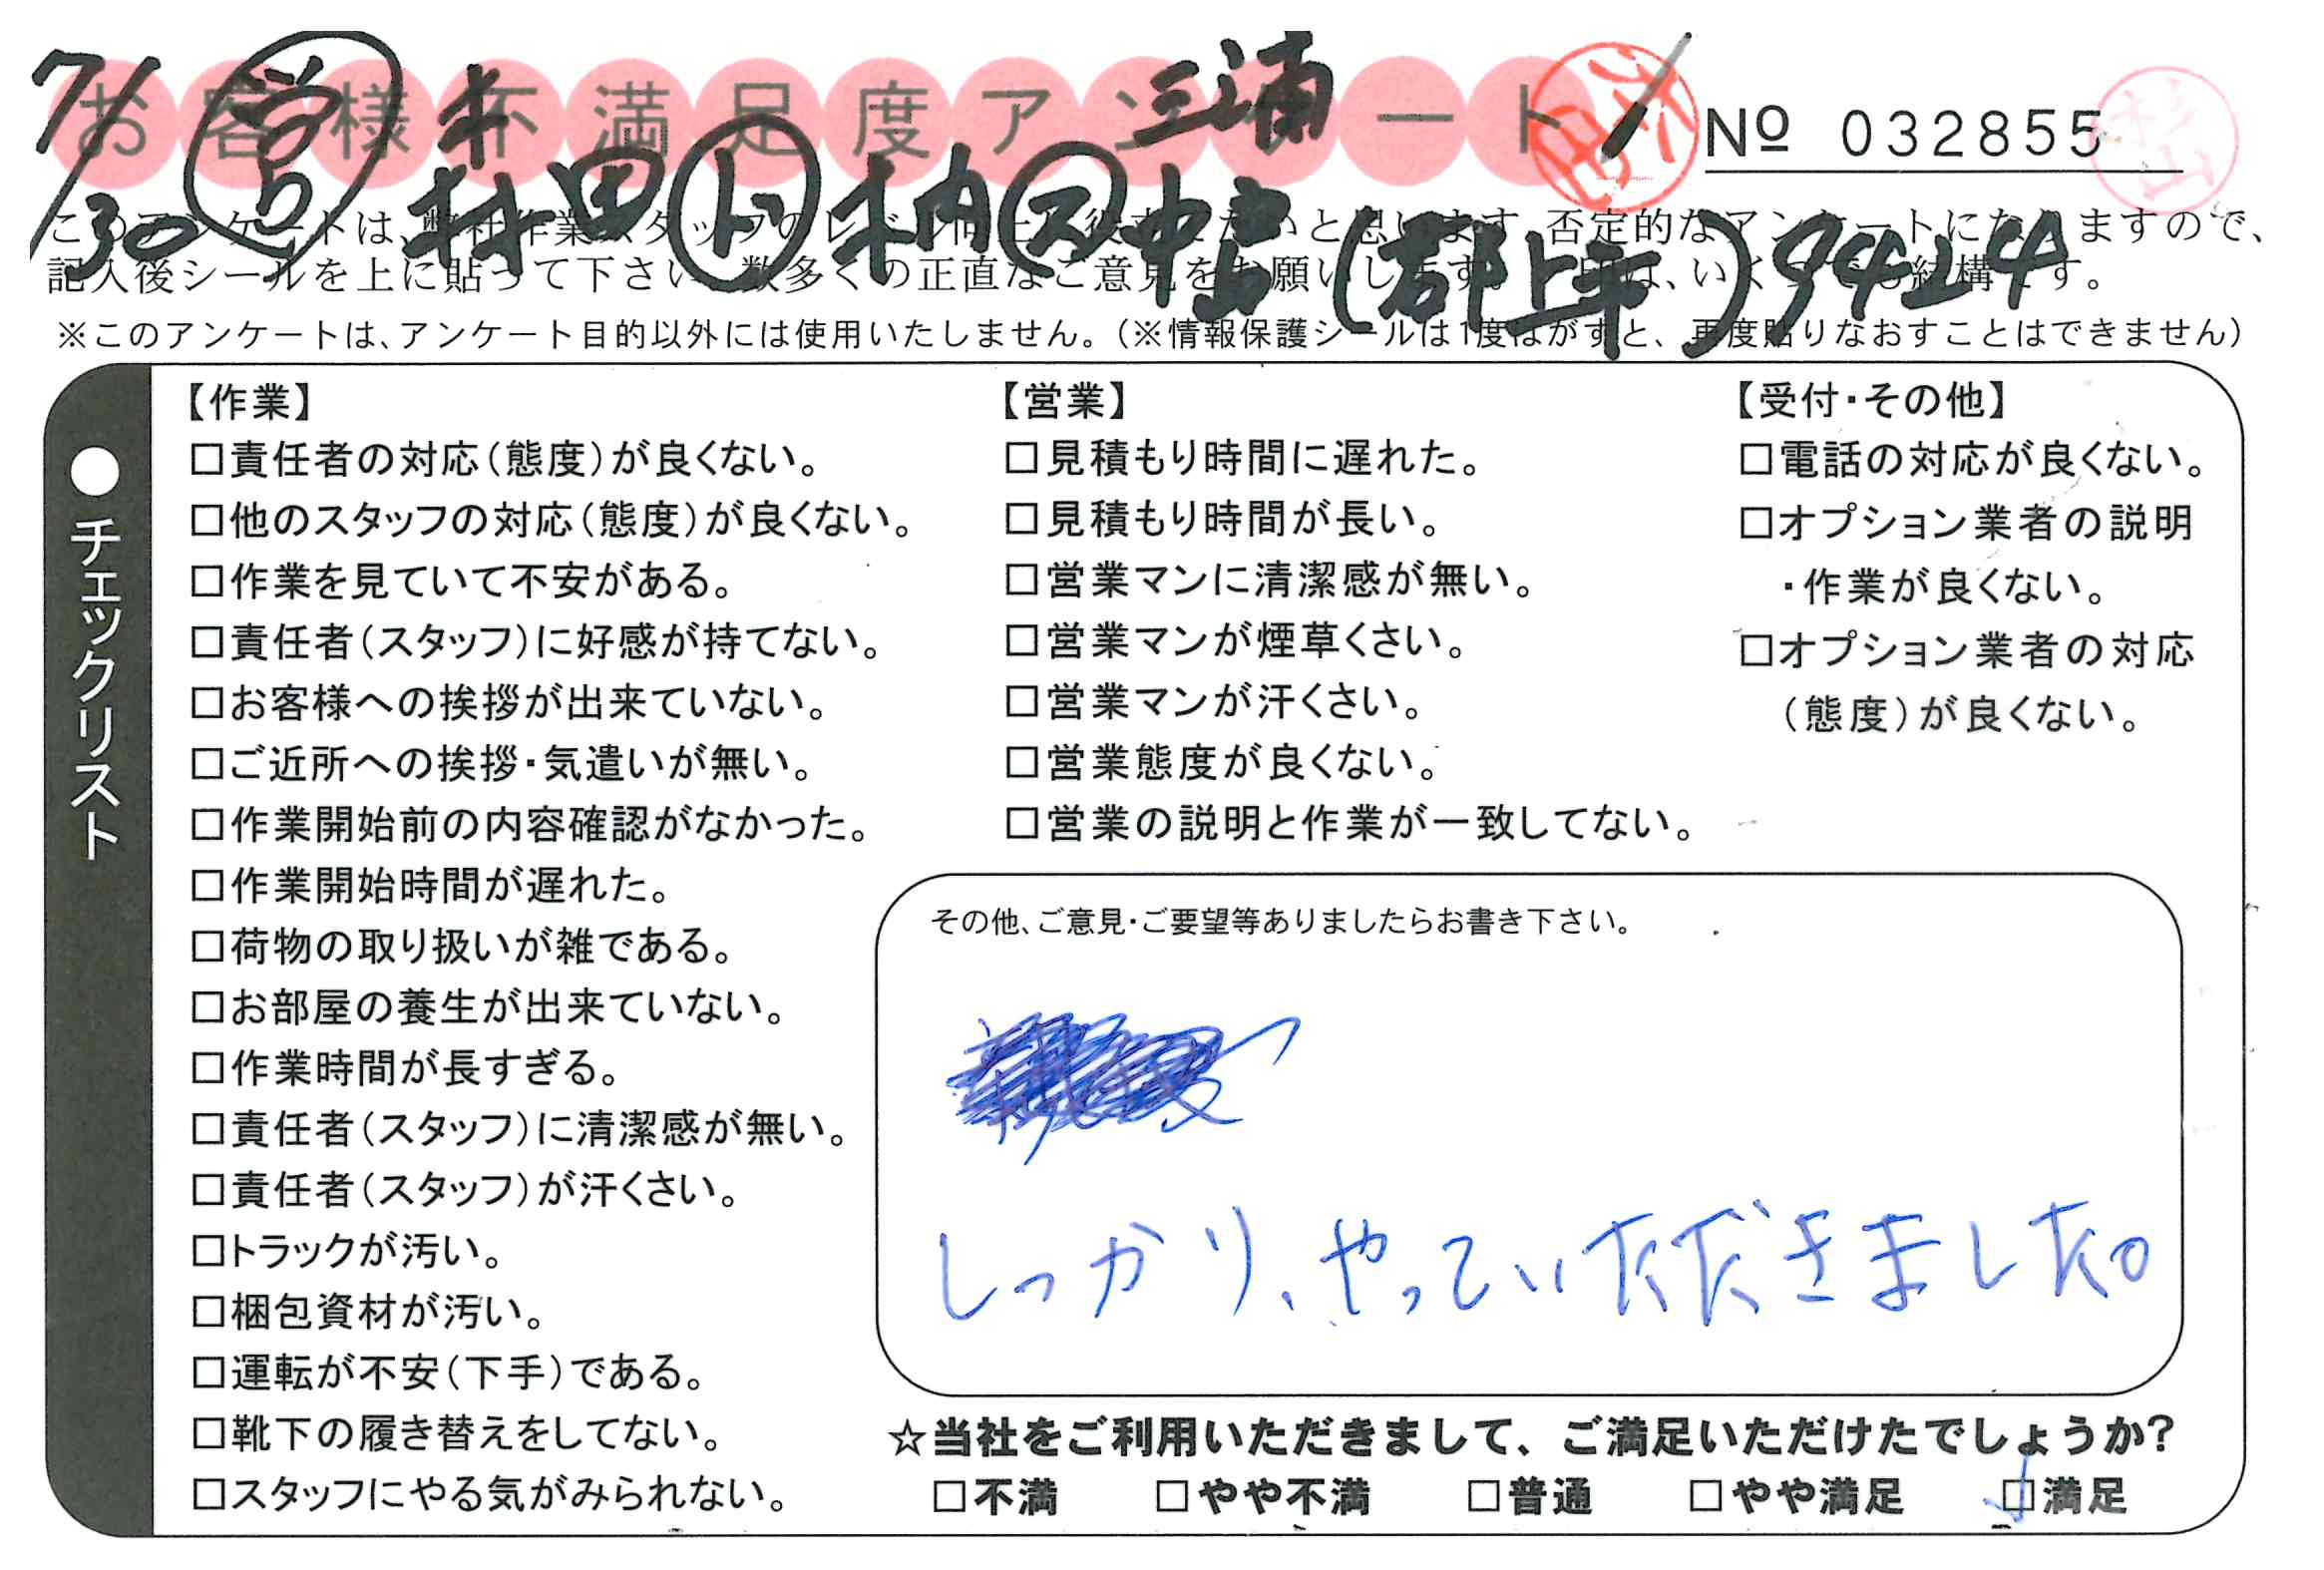 お客様不満足度アンケート
三浦
No 032855
杉山
7/30 営 本 村田 ト 木内 ス 中 (郡上 ) 9424
このアンケートは、弊社作業スタッフのレベル向上に役立てたいと思います。否定的なアンケートになりますので、
記入後シールを上に貼って下さい。数多くの正直なご意見をお願いします。 印は、いくつでも結構です。
※このアンケートは、アンケート目的以外には使用いたしません。(※情報保護シールは1度はがすと、再度貼りなおすことはできません)
●チェックリスト
【作業】
□責任者の対応(態度)が良くない。
□他のスタッフの対応(態度)が良くない。
□作業を見ていて不安がある。
□責任者(スタッフ)に好感が持てない。
□お客様への挨拶が出来ていない。
□ご近所への挨拶・気遣いが無い。
□作業開始前の内容確認がなかった。
□作業開始時間が遅れた。
□荷物の取り扱いが雑である。
□お部屋の養生が出来ていない。
□作業時間が長すぎる。
□責任者(スタッフ)に清潔感が無い。
□責任者(スタッフ)が汗くさい。
□トラックが汚い。
□梱包資材が汚い。
□運転が不安(下手)である。
□靴下の履き替えをしてない。
□スタッフにやる気がみられない。
【営業】
□見積もり時間に遅れた。
□見積もり時間が長い。
□営業マンに清潔感が無い。
□営業マンが煙草くさい。
□営業マンが汗くさい。
□営業態度が良くない。
□営業の説明と作業が一致してない。
【受付・その他】
□電話の対応が良くない。
□オプション業者の説明
・作業が良くない。
□オプション業者の対応
(態度)が良くない。
その他、ご意見・ご要望等ありましたらお書き下さい。
しっかり、やっていただきました。
☆当社をご利用いただきまして、ご満足いただけたでしょうか?
□不満 □やや不満 □普通 □やや満足 ☑満足